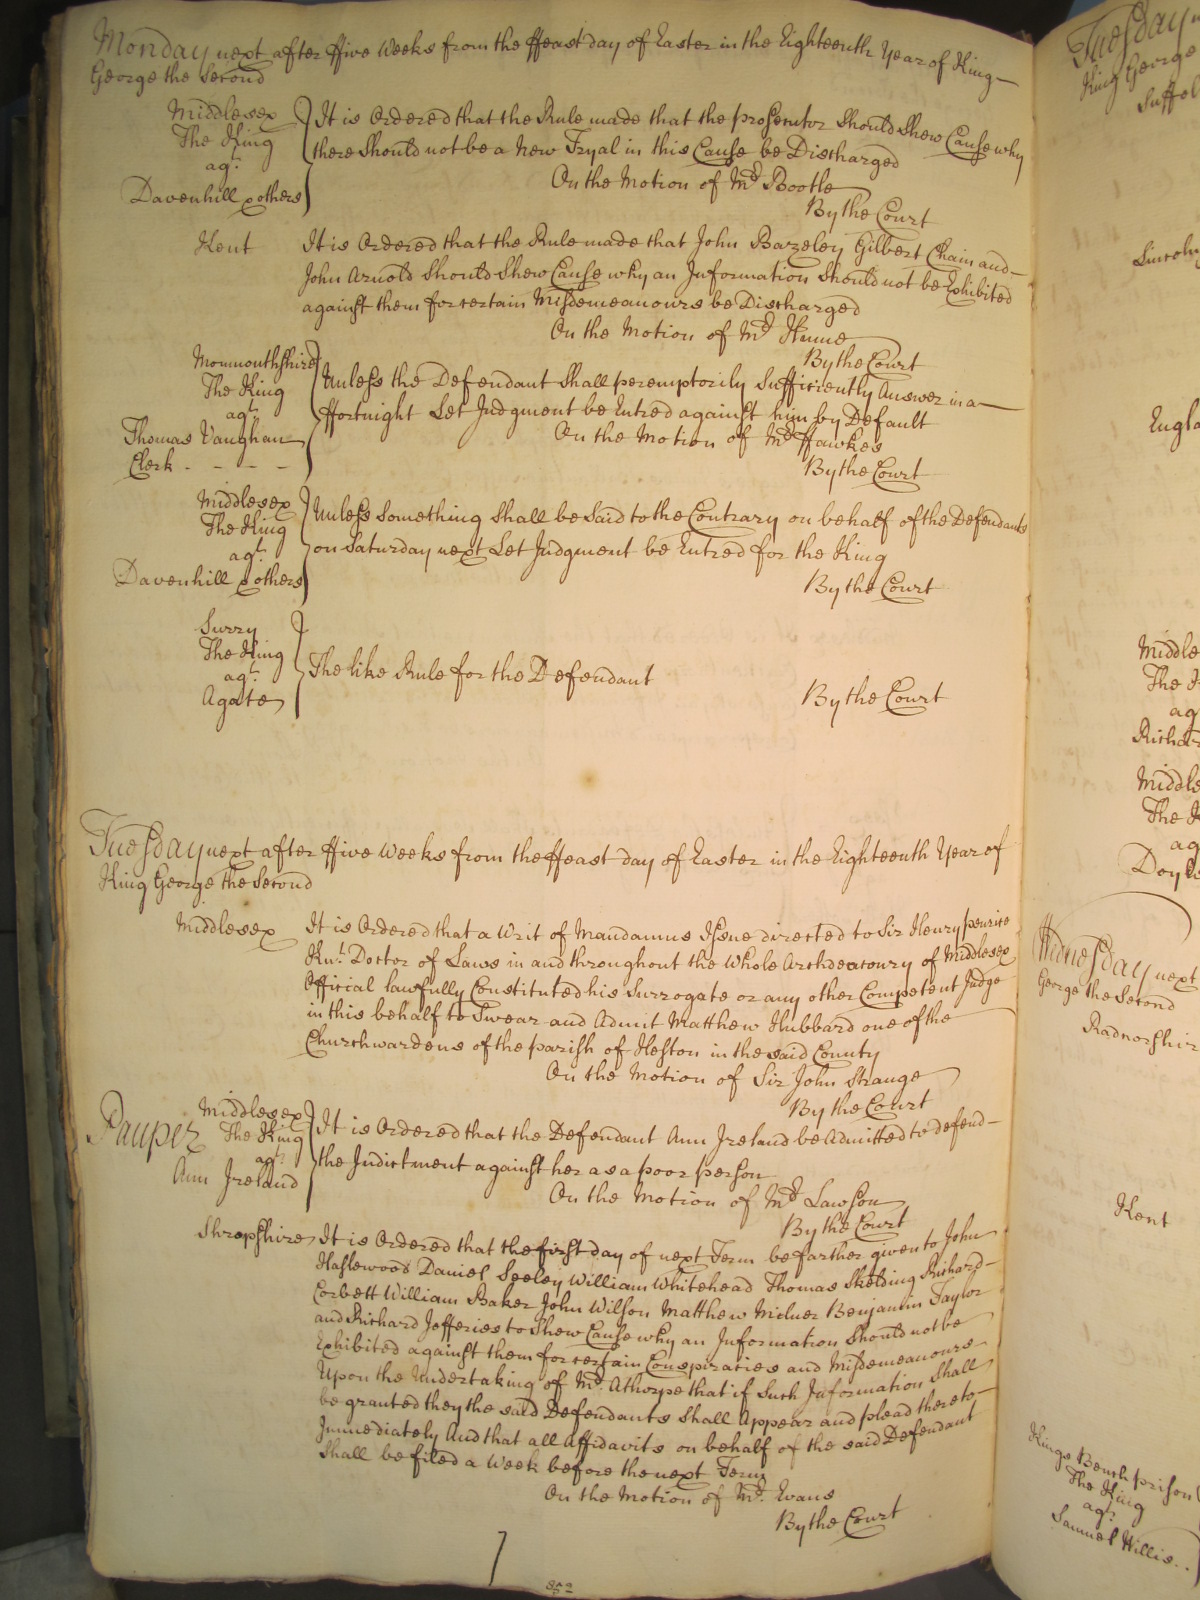 Monday next after ffive Weeks from the ffeast day of Easter in the Eighteenth Year of King
George the Second
Middlesex
The King
agt.
Davenhill & others
It is Ordered that the Rule made that the prosecutor Should Shew Cause why
there Should not be a New Tryal in this Cause be Discharged
On the Motion of Mr. Bootle
By the Court
Kent
It is Ordered that the Rule made that John Bazeley Gilbert Chain and
John Arnold Should Shew Cause why an Information Should not be Exhibited
against them for certain Misdemeanours be Discharged
On the Motion of Mr.
By the Court
Monmouthshire
The King
agt.
Thomas Vaughan
Clerk - - - -
Unless the Defendant Shall peremptorily Sufficiently Answer in a
ffortnight Let Judgment be Entred against him by Default
On the Motion of Mr. ffawkes
By the Court
Middlesex
The King
agt.
Davenhill & others
Unless Something Shall be Said to the Contrary on behalf of the Defendants
on Saturday next Let Judgment be Entred for the King
By the Court
Surry
The King
agt.
Agate
The like Rule for the Defendant
By the Court
Tuesday next after ffive Weeks from the ffeast day of Easter in the Eighteenth Year of
King George the Second
Middlesex
It is Ordered that a Writ of Mandamus Issue directed to Sir Henry penrice
Knt. Doctor of Laws in and throughout the Whole Archdeaconry of Middlesex
Official lawfully Constituted his Surrogate or any other Competent Judge
in this behalf to Swear and Admit Matthew Hubbard one of the
Churchwardens of the parish of Heston in the said County
On the Motion of Sir John Strange
By the Court
Pauper
Middlesex
The King
agt.
Ann Ireland
It is Ordered that the Defendant Ann Ireland be Admitted to defend
the Indictment against her as a poor person
On the Motion of Mr. Lawson
By the Court
Shropshire
It is Ordered that the first day of next Term be farther given to John
Haslewood Daniel Seeley William Whitehead Thomas Skelding Richard
Corbett William Baker John Wilson Matthew Milner Benjamin Taylor
and Richard Jefferies to Shew Cause why an Information Should not be
Exhibited against them for certain Conspiracies and Misdemeanours
Upon the Undertaking of Mr. Athorpe that if Such Information Shall
be granted they the said Defendants Shall Appear and plead thereto
Immediately And that all Affidavits on behalf of the said Defendant
Shall be filed a Week before the next Term
On the Motion of Mr. Evans
By the Court
Tuesday
King George
Suffol
Lincoln
Engla
Middle
The K
ag
Richar
Middle
The K
ag
Doyle
Wednesday next
George the Second
Radnorshir
Kent
Kings Bench prison
The King
agt.
Samuel Willis